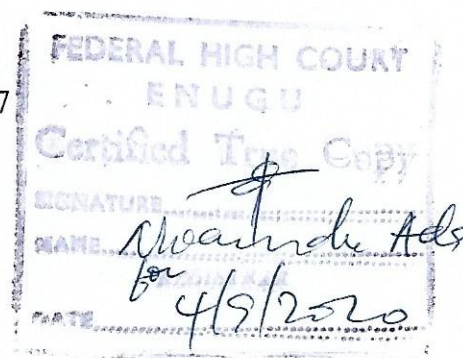 7
FEDERAL HIGH COURT
ENUGU
Certified True Copy
SIGNATURE
NAME
for
DATE 4/9/2020